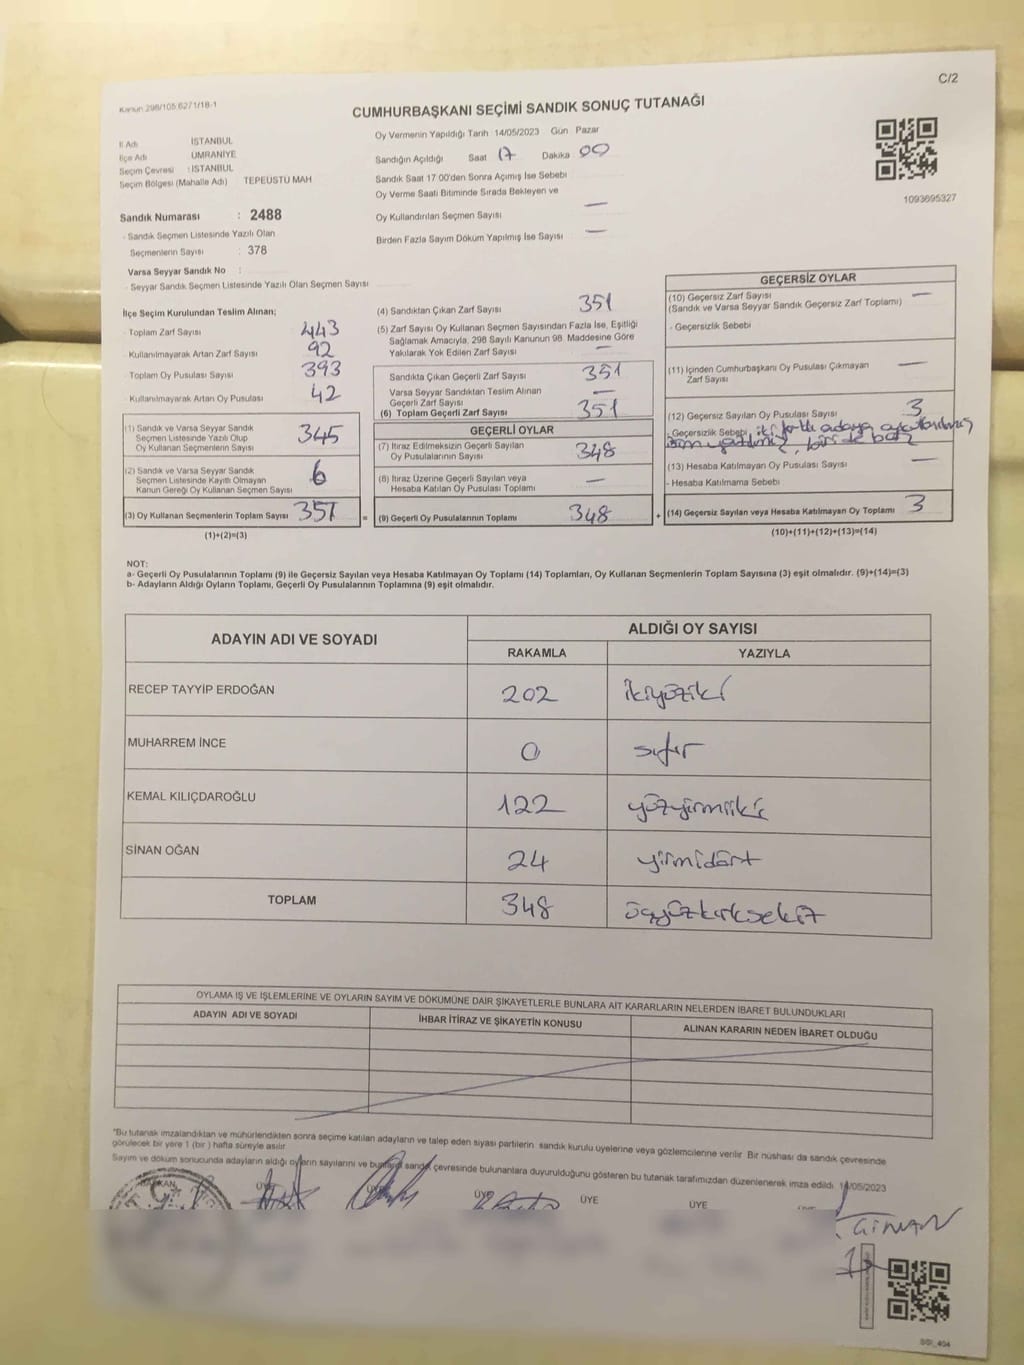 C/2
Kanun 298/105 6271/18-1
CUMHURBAŞKANI SEÇİMİ SANDIK SONUÇ TUTANAĞI
İl Adı İSTANBUL
İlçe Adı ÜMRANİYE
Seçim Çevresi : İSTANBUL
Seçim Bölgesi (Mahalle Adı) TEPEÜSTÜ MAH
Sandık Numarası : 2488
- Sandık Seçmen Listesinde Yazılı Olan
Seçmenlerin Sayısı : 378
Varsa Seyyar Sandık No :
- Seyyar Sandık Seçmen Listesinde Yazılı Olan Seçmen Sayısı
Oy Vermenin Yapıldığı Tarih 14/05/2023 Gün Pazar
Sandığın Açıldığı Saat 17 Dakika 00
Sandık Saat 17 00'den Sonra Açımış İse Sebebi
Oy Verme Saati Bitiminde Sırada Bekleyen ve
Oy Kullandırılan Seçmen Sayısı —
Birden Fazla Sayım Döküm Yapılmış İse Sayısı —
1093695327
İlçe Seçim Kurulundan Teslim Alınan;
- Toplam Zarf Sayısı 443
- Kullanılmayarak Artan Zarf Sayısı 92
- Toplam Oy Pusulası Sayısı 393
- Kullanılmayarak Artan Oy Pusulası 42
(1) Sandık ve Varsa Seyyar Sandık
Seçmen Listesinde Yazılı Olup
Oy Kullanan Seçmenlerin Sayısı 345
(2) Sandık ve Varsa Seyyar Sandık
Seçmen Listesinde Kayıtlı Olmayan
Kanun Gereği Oy Kullanan Seçmen Sayısı 6
(3) Oy Kullanan Seçmenlerin Toplam Sayısı 351 =
(1)+(2)=(3)
(4) Sandıktan Çıkan Zarf Sayısı 351
(5) Zarf Sayısı Oy Kullanan Seçmen Sayısından Fazla İse, Eşitliği
Sağlamak Amacıyla, 298 Sayılı Kanunun 98 Maddesine Göre
Yakılarak Yok Edilen Zarf Sayısı —
Sandıkta Çıkan Geçerli Zarf Sayısı 351
Varsa Seyyar Sandıktan Teslim Alınan
Geçerli Zarf Sayısı —
(6) Toplam Geçerli Zarf Sayısı 351
GEÇERLİ OYLAR
(7) İtiraz Edilmeksizin Geçerli Sayılan
Oy Pusulalarının Sayısı 348
(8) İtiraz Üzerine Geçerli Sayılan veya
Hesaba Katılan Oy Pusulası Toplamı —
(9) Geçerli Oy Pusulalarının Toplamı 348 +
GEÇERSİZ OYLAR
(10) Geçersiz Zarf Sayısı —
(Sandık ve Varsa Seyyar Sandık Geçersiz Zarf Toplamı)
- Geçersizlik Sebebi
(11) İçinden Cumhurbaşkanı Oy Pusulası Çıkmayan
Zarf Sayısı —
(12) Geçersiz Sayılan Oy Pusulası Sayısı 3
- Geçersizlik Sebebi iki farklı adaya oy
biri de boş
(13) Hesaba Katılmayan Oy Pusulası Sayısı —
- Hesaba Katılmama Sebebi
(14) Geçersiz Sayılan veya Hesaba Katılmayan Oy Toplamı 3
(10)+(11)+(12)+(13)=(14)
NOT:
a- Geçerli Oy Pusulalarının Toplamı (9) ile Geçersiz Sayılan veya Hesaba Katılmayan Oy Toplamı (14) Toplamları, Oy Kullanan Seçmenlerin Toplam Sayısına (3) eşit olmalıdır. (9)+(14)=(3)
b- Adayların Aldığı Oyların Toplamı, Geçerli Oy Pusulalarının Toplamına (9) eşit olmalıdır.
ADAYIN ADI VE SOYADI ALDIĞI OY SAYISI
RAKAMLA YAZIYLA
RECEP TAYYİP ERDOĞAN 202 ikiyüziki
MUHARREM İNCE 0 sıfır
KEMAL KILIÇDAROĞLU 122 yüzyirmiiki
SİNAN OĞAN 24 yirmidört
TOPLAM 348 üçyüzkırksekiz
OYLAMA İŞ VE İŞLEMLERİNE VE OYLARIN SAYIM VE DÖKÜMÜNE DAİR ŞİKAYETLERLE BUNLARA AİT KARARLARIN NELERDEN İBARET BULUNDUKLARI
ADAYIN ADI VE SOYADI İHBAR İTİRAZ VE ŞİKAYETİN KONUSU ALINAN KARARIN NEDEN İBARET OLDUĞU
*Bu tutanak imzalandıktan ve mühürlendikten sonra seçime katılan adayların ve talep eden siyasi partilerin sandık kurulu üyelerine veya gözlemcilerine verilir Bir nüshası da sandık çevresinde
görülecek bir yere 1 (bir ) hafta süreyle asılır
Sayım ve döküm sonucunda adayların aldığı oyların sayılarını ve bunların sandık çevresinde bulunanlara duyurulduğunu gösteren bu tutanak tarafımızdan düzenlenerek imza edildi 14/05/2023
BAŞKAN ÜYE ÜYE ÜYE ÜYE ÜYE